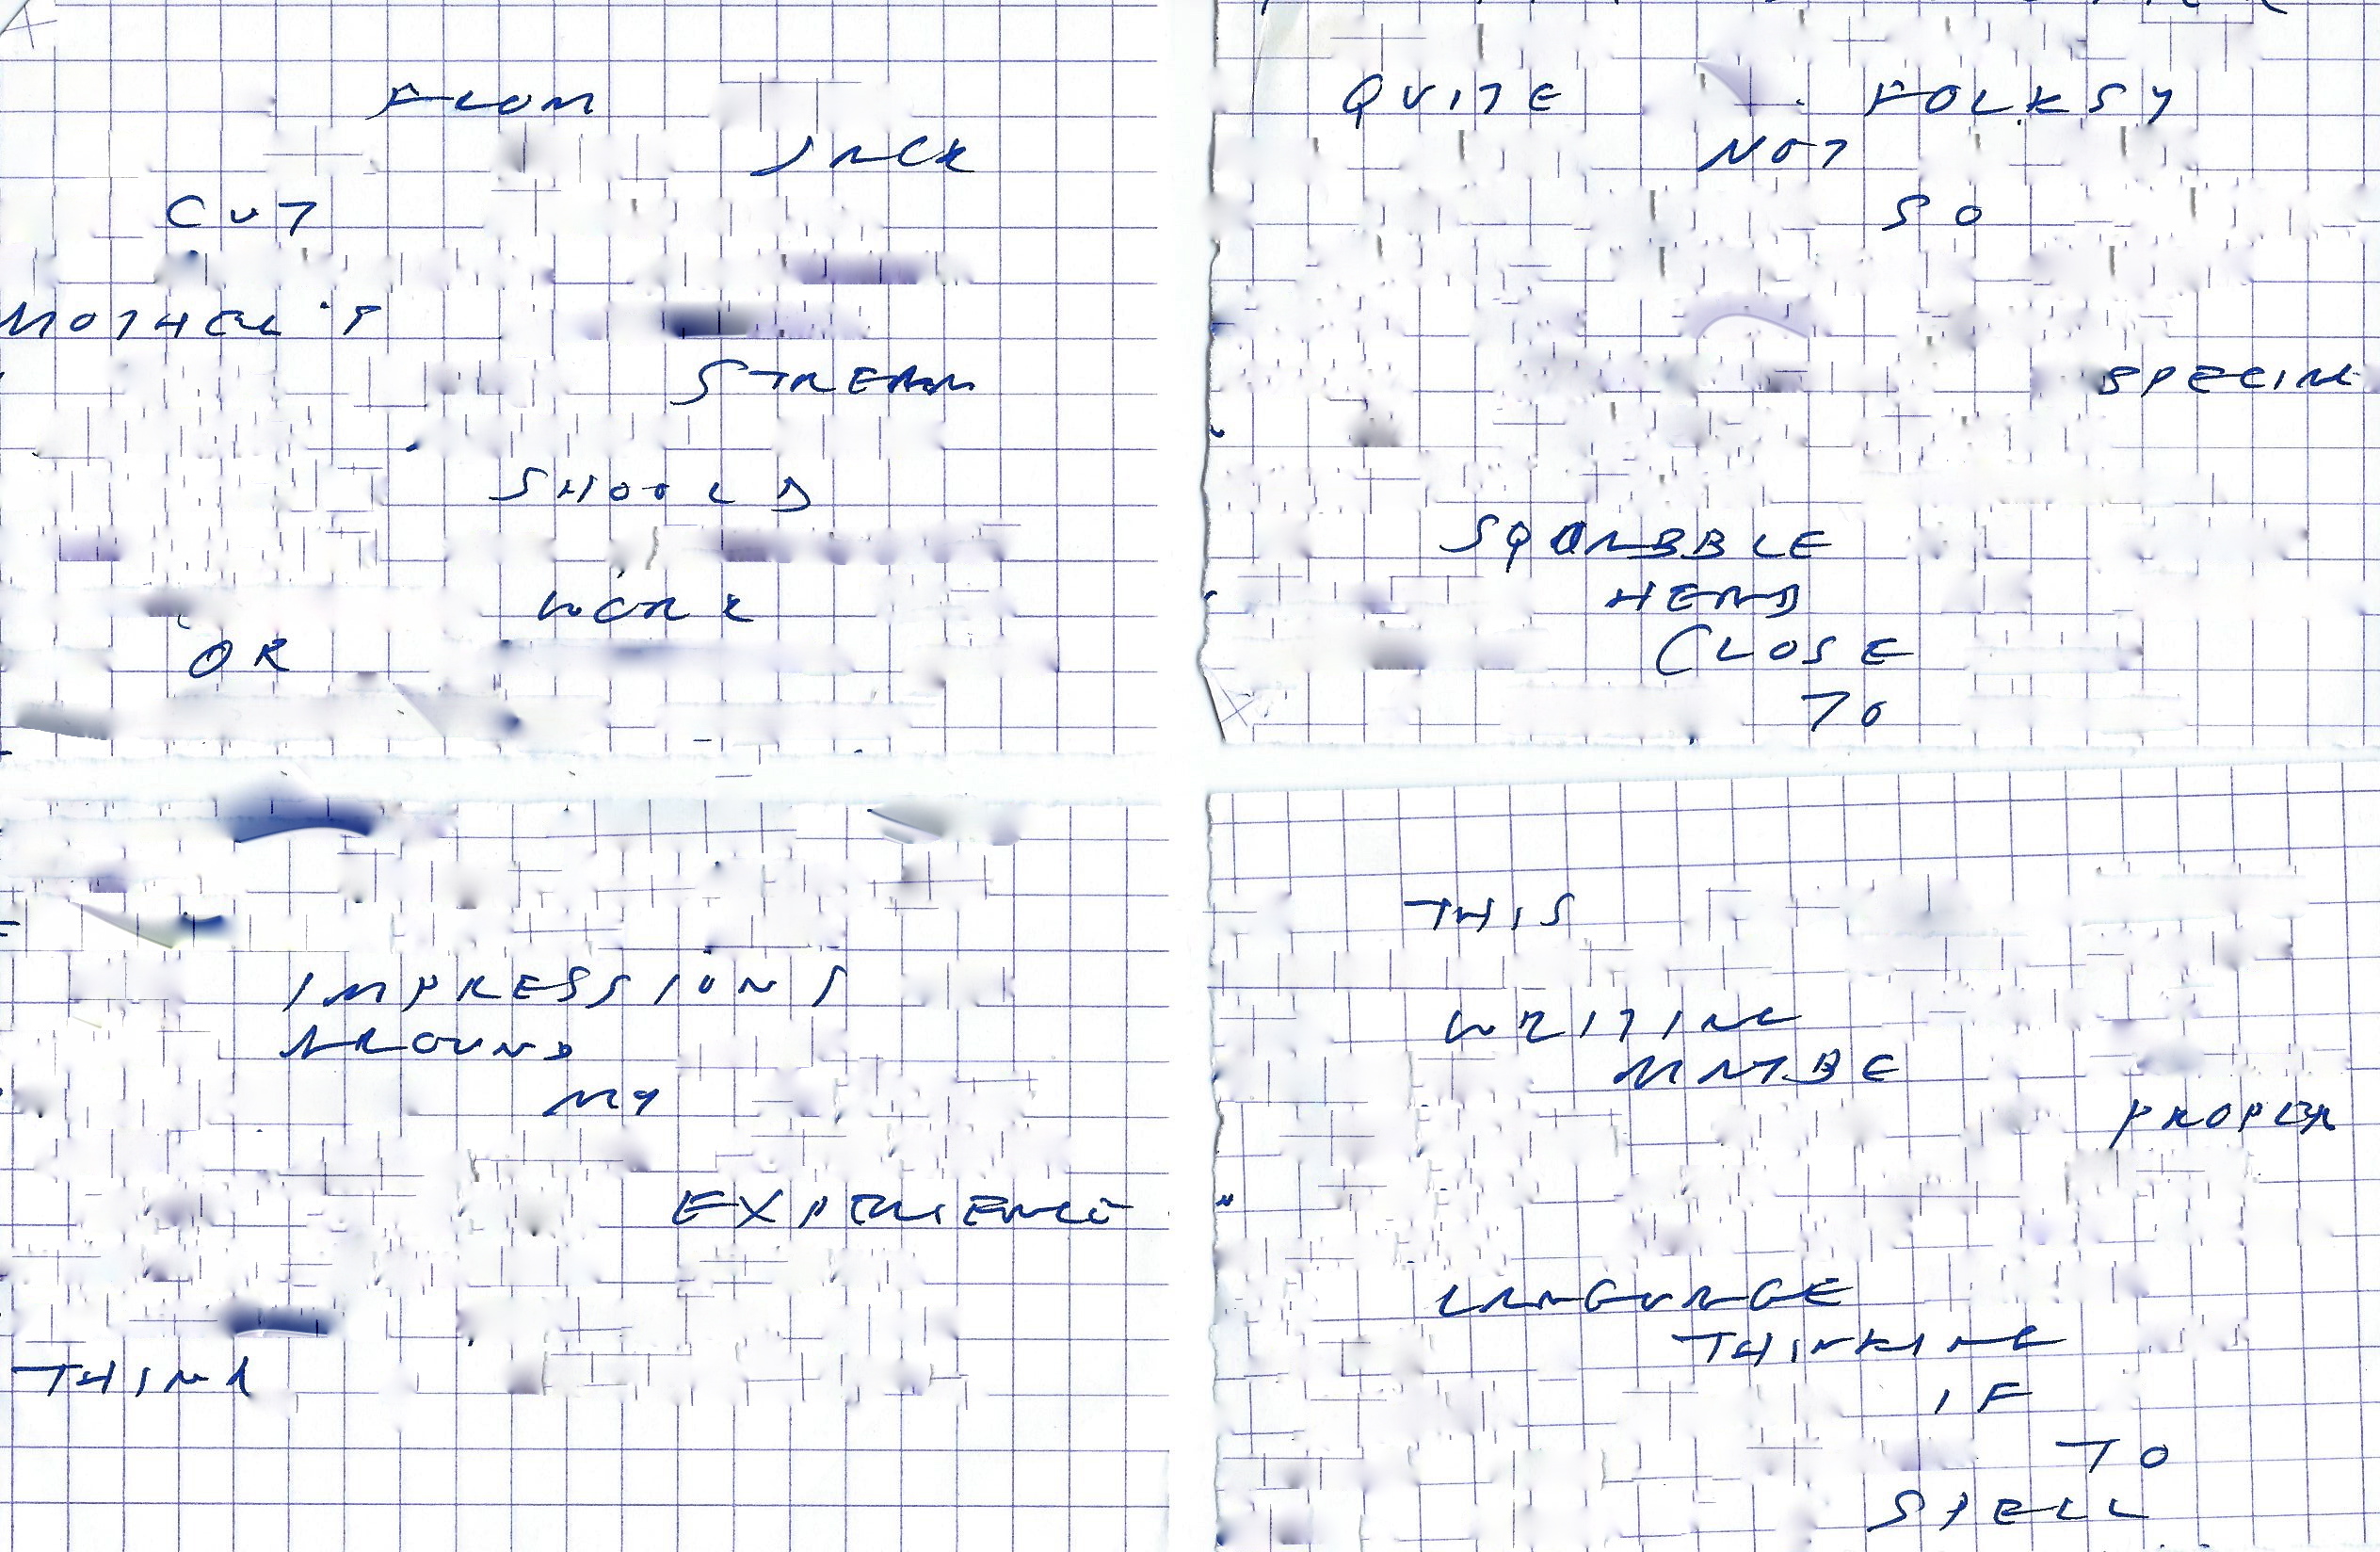 FROM
JACK
CUT
MOTHER'S
STREAM
SHOULD
WORK
OR
QUITE FOLKSY
NOT
SO
SPECIAL
SQUABBLE
HEAD
CLOSE
TO
IMPRESSIONS
AROUND
MY
EXPERIENCE
THINK
THIS
WRITING
MAYBE
PROPER
LANGUAGE
THINKING
IF
TO
SPELL